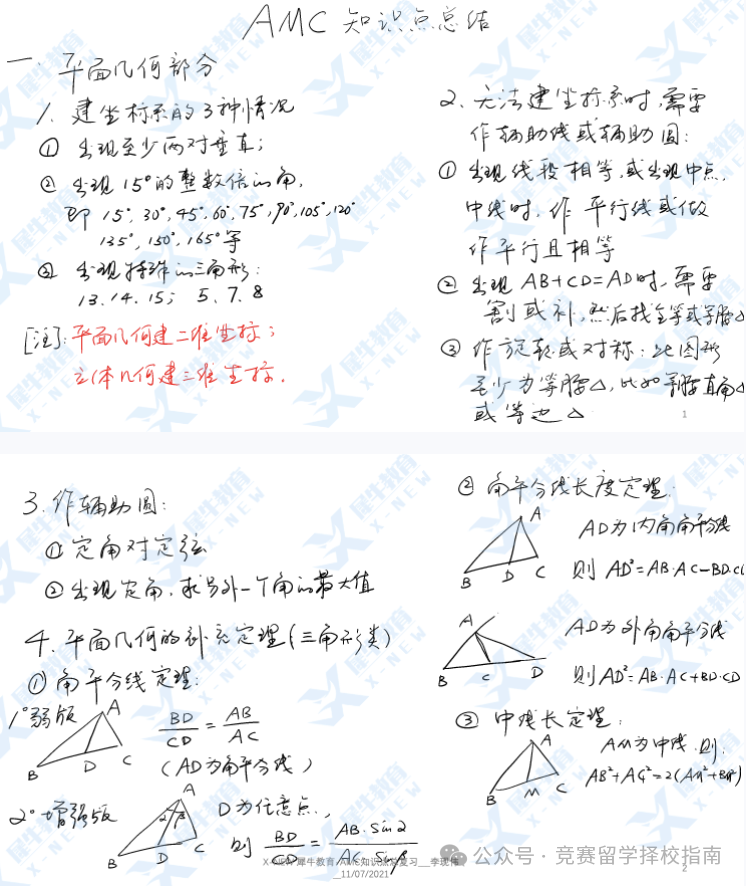 AMC 知识点总结
一. 平面几何部分
1. 建坐标系的3种情况
① 出现至少两对垂直;
② 出现15°的整数倍的角,
即 15°, 30°, 45°, 60°, 75°, 90°, 105°, 120°
135°, 150°, 165°等
③ 出现特殊的三角形:
13. 14. 15; 5. 7. 8
[注]: 平面几何建二维坐标;
立体几何建三维坐标.
2. 无法建坐标系时,需要
作辅助线或辅助圆:
① 出现线段相等,或出现中点,
中线时,作平行线或做
作平行且相等
② 出现 AB+CD=AD时,需要
割或补,然后找全等或等腰△
③ 作旋转或对称: 此图形
至少为等腰△,比如等腰直角△
或等边△
1
3. 作辅助圆:
① 定角对定弦
② 出现定角,求另外一个角的最大值
4. 平面几何的补充定理(三角形类)
① 角平分线定理:
1° 弱版
A
B D C
BD/CD = AB/AC
(AD为角平分线)
2° 增强版
A
α β
B D C
D为任意点,
则 BD/CD = AB·Sinα/AC·Sinβ
② 角平分线长度定理:
A
B D C
AD为内角角平分线
则 AD²=AB·AC-BD·CD
A
B C D
AD为外角角平分线
则 AD²=AB·AC+BD·CD
③ 中线长定理:
A
B M C
AM为中线,则:
AB²+AC²=2(AM²+BM²)
犀牛教育
X-NEW
公众号·竞赛留学择校指南
11/07/2021
2